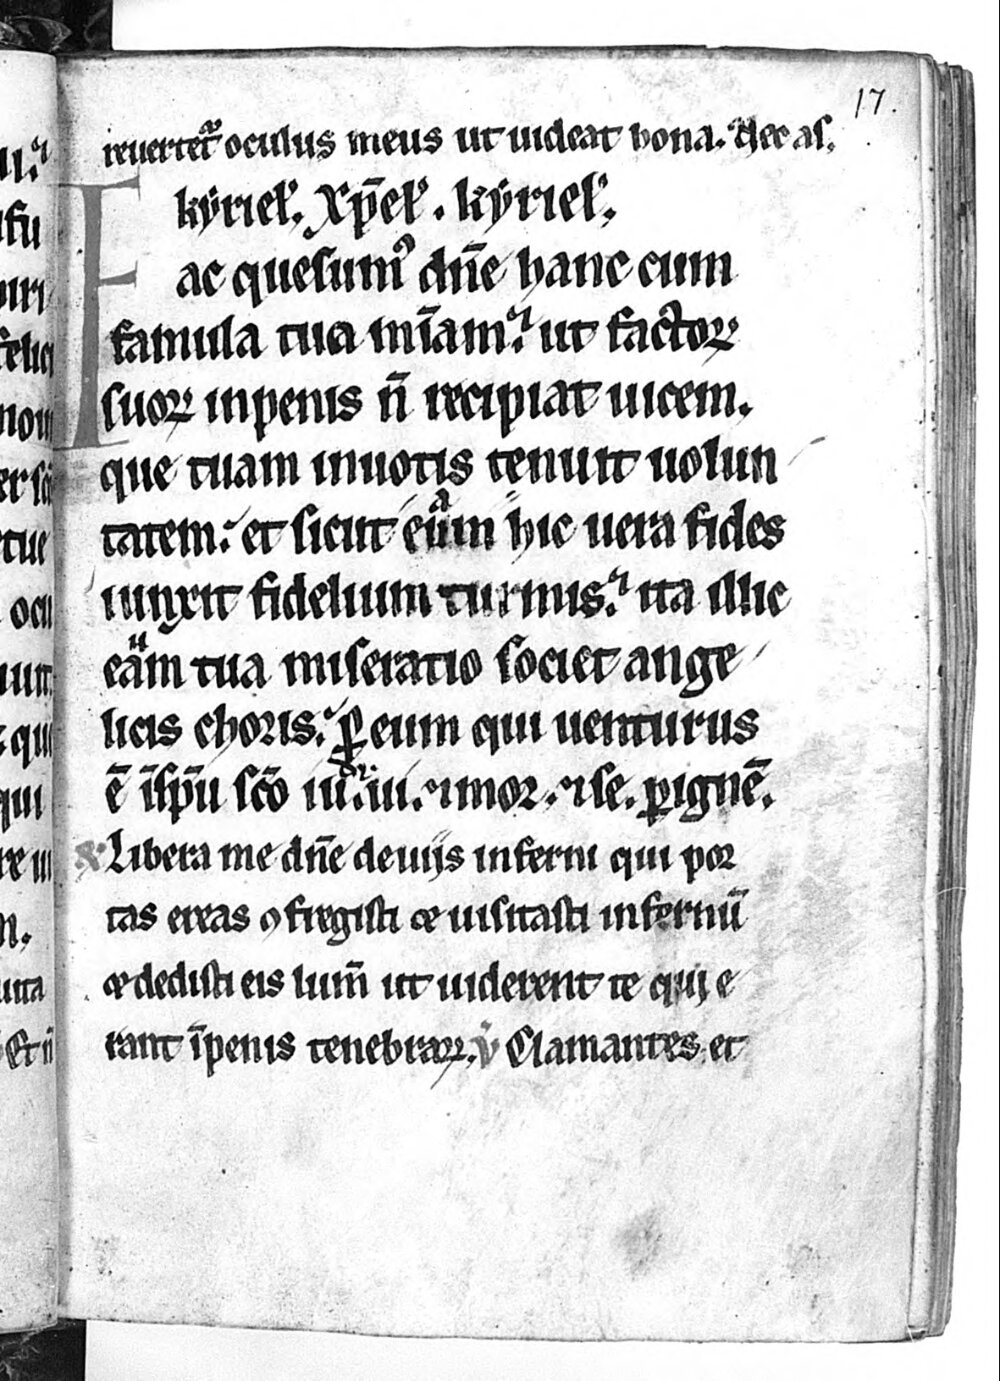 17.
reuertet᷑ oculus meus ut uideat bona. Nec as.
kyriel̓. Xp̄el̓. kyriel̓.
Fac quesumꝰ dn̄e hanc cum
famula tua mīam. ut factoꝝ
suoꝝ inpenis n̄ recipiat uicem.
que tuam inuotis tenuit uolun
tatem. et sicut eūm hic uera fides
iunxit fidelium turmis. ita illic
eam tua miseratio societ ange
licis choris. ꝑ eum qui uenturus
ē īsp̄u sc̄o iud̓. uiu. ⁊ moꝛ. ⁊ se. ꝑ ignē.
℟ Libera me dn̄e deuiis inferni qui por
tas ereas ꝯfregisti et uisitasti infernū
et dedisti eis lum̄ ut uiderent te qui e
rant īpenis tenebraꝝ. ℣ Clamantes et